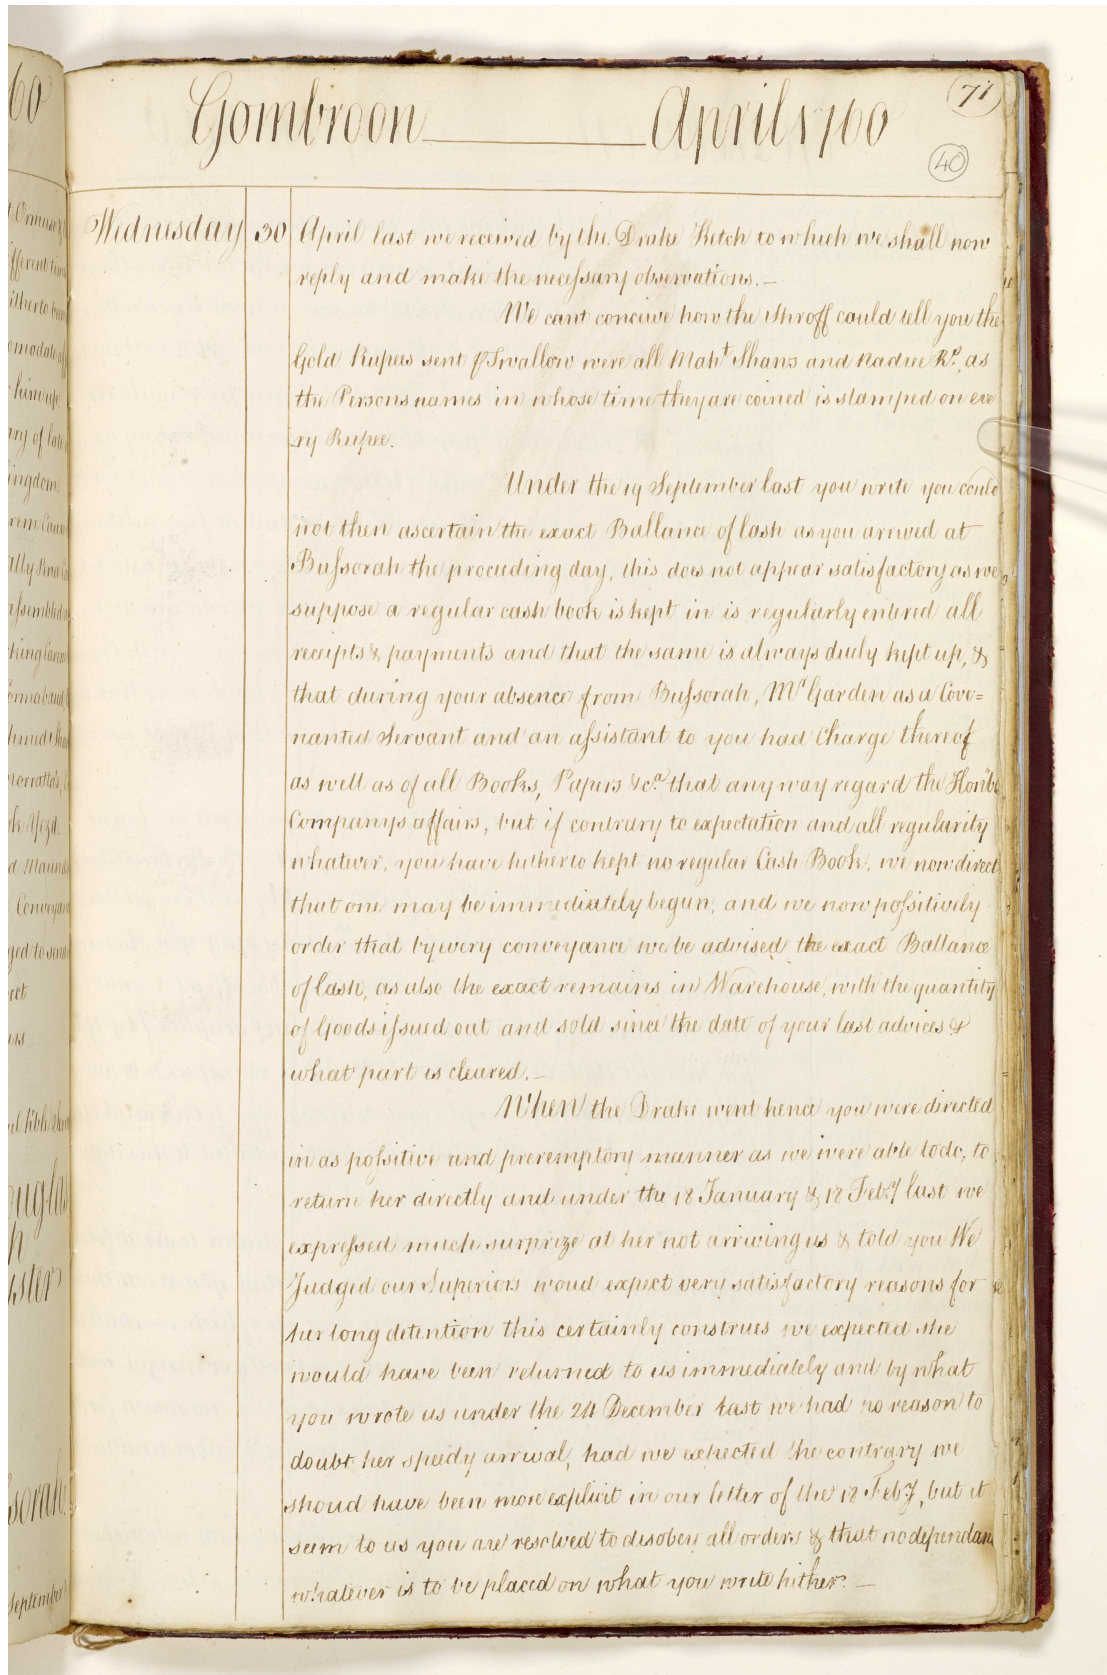 71
Gombroon April 1760
40
Wednesday 30 April last we received by the Drake Ketch to which we shall now
reply and make the necessary observations.
We cant conceive how the Shroff could tell you the
Gold Rupees sent Swallow were all Mah.t Shans and Nadree R.s, as
the Persons names in whose time they are coined is stamped on eve
ry Rupee.
Under the 19 September last you write you could
not then ascertain the exact Ballance of Cash as you arrived at
Bussorah the proceeding day, this does not appear satisfactory as we
suppose a regular cash book is kept in is regularly entered all
receipts & payments and that the same is always duely kept up, &
that during your absence from Bussorah, Mr Garden as a Cove=
nanted Servant and an assistant to you had Charge thereof
as well as of all Books, Papers &ca. that any way regard the Honble
Companys affairs, but if contrary to expectation and all regularity
whatever, you have hitherto kept no regular Cash Book, we now direct
that one may be immediately begun, and we now possitively
order that by every conveyance we be advised the exact Ballance
of Cash, as also the exact remains in Warehouse, with the quantity
of Goods issued out and sold since the date of your last advices &
what part is cleared.
When the Drake went hence you were directed
in as possitive and preremptory manner as we were able to do, to
return her directly and under the 18 January & 18 Feb.y last we
expressed much surprize at her not arriving us & told you We
Judged our Superiors woud expect very satisfactory reasons for
her long detention this certainly construes we expected she
would have been returned to us immediately and by what
you wrote us under the 24 December last we had no reason to
doubt her speedy arrival, had we expected the contrary we
shoud have been more explicit in our letter of the 18 Feb.y, but it
seem to us you are resolved to disobey all orders & that no dependan
whatever is to be placed on what you write hither.